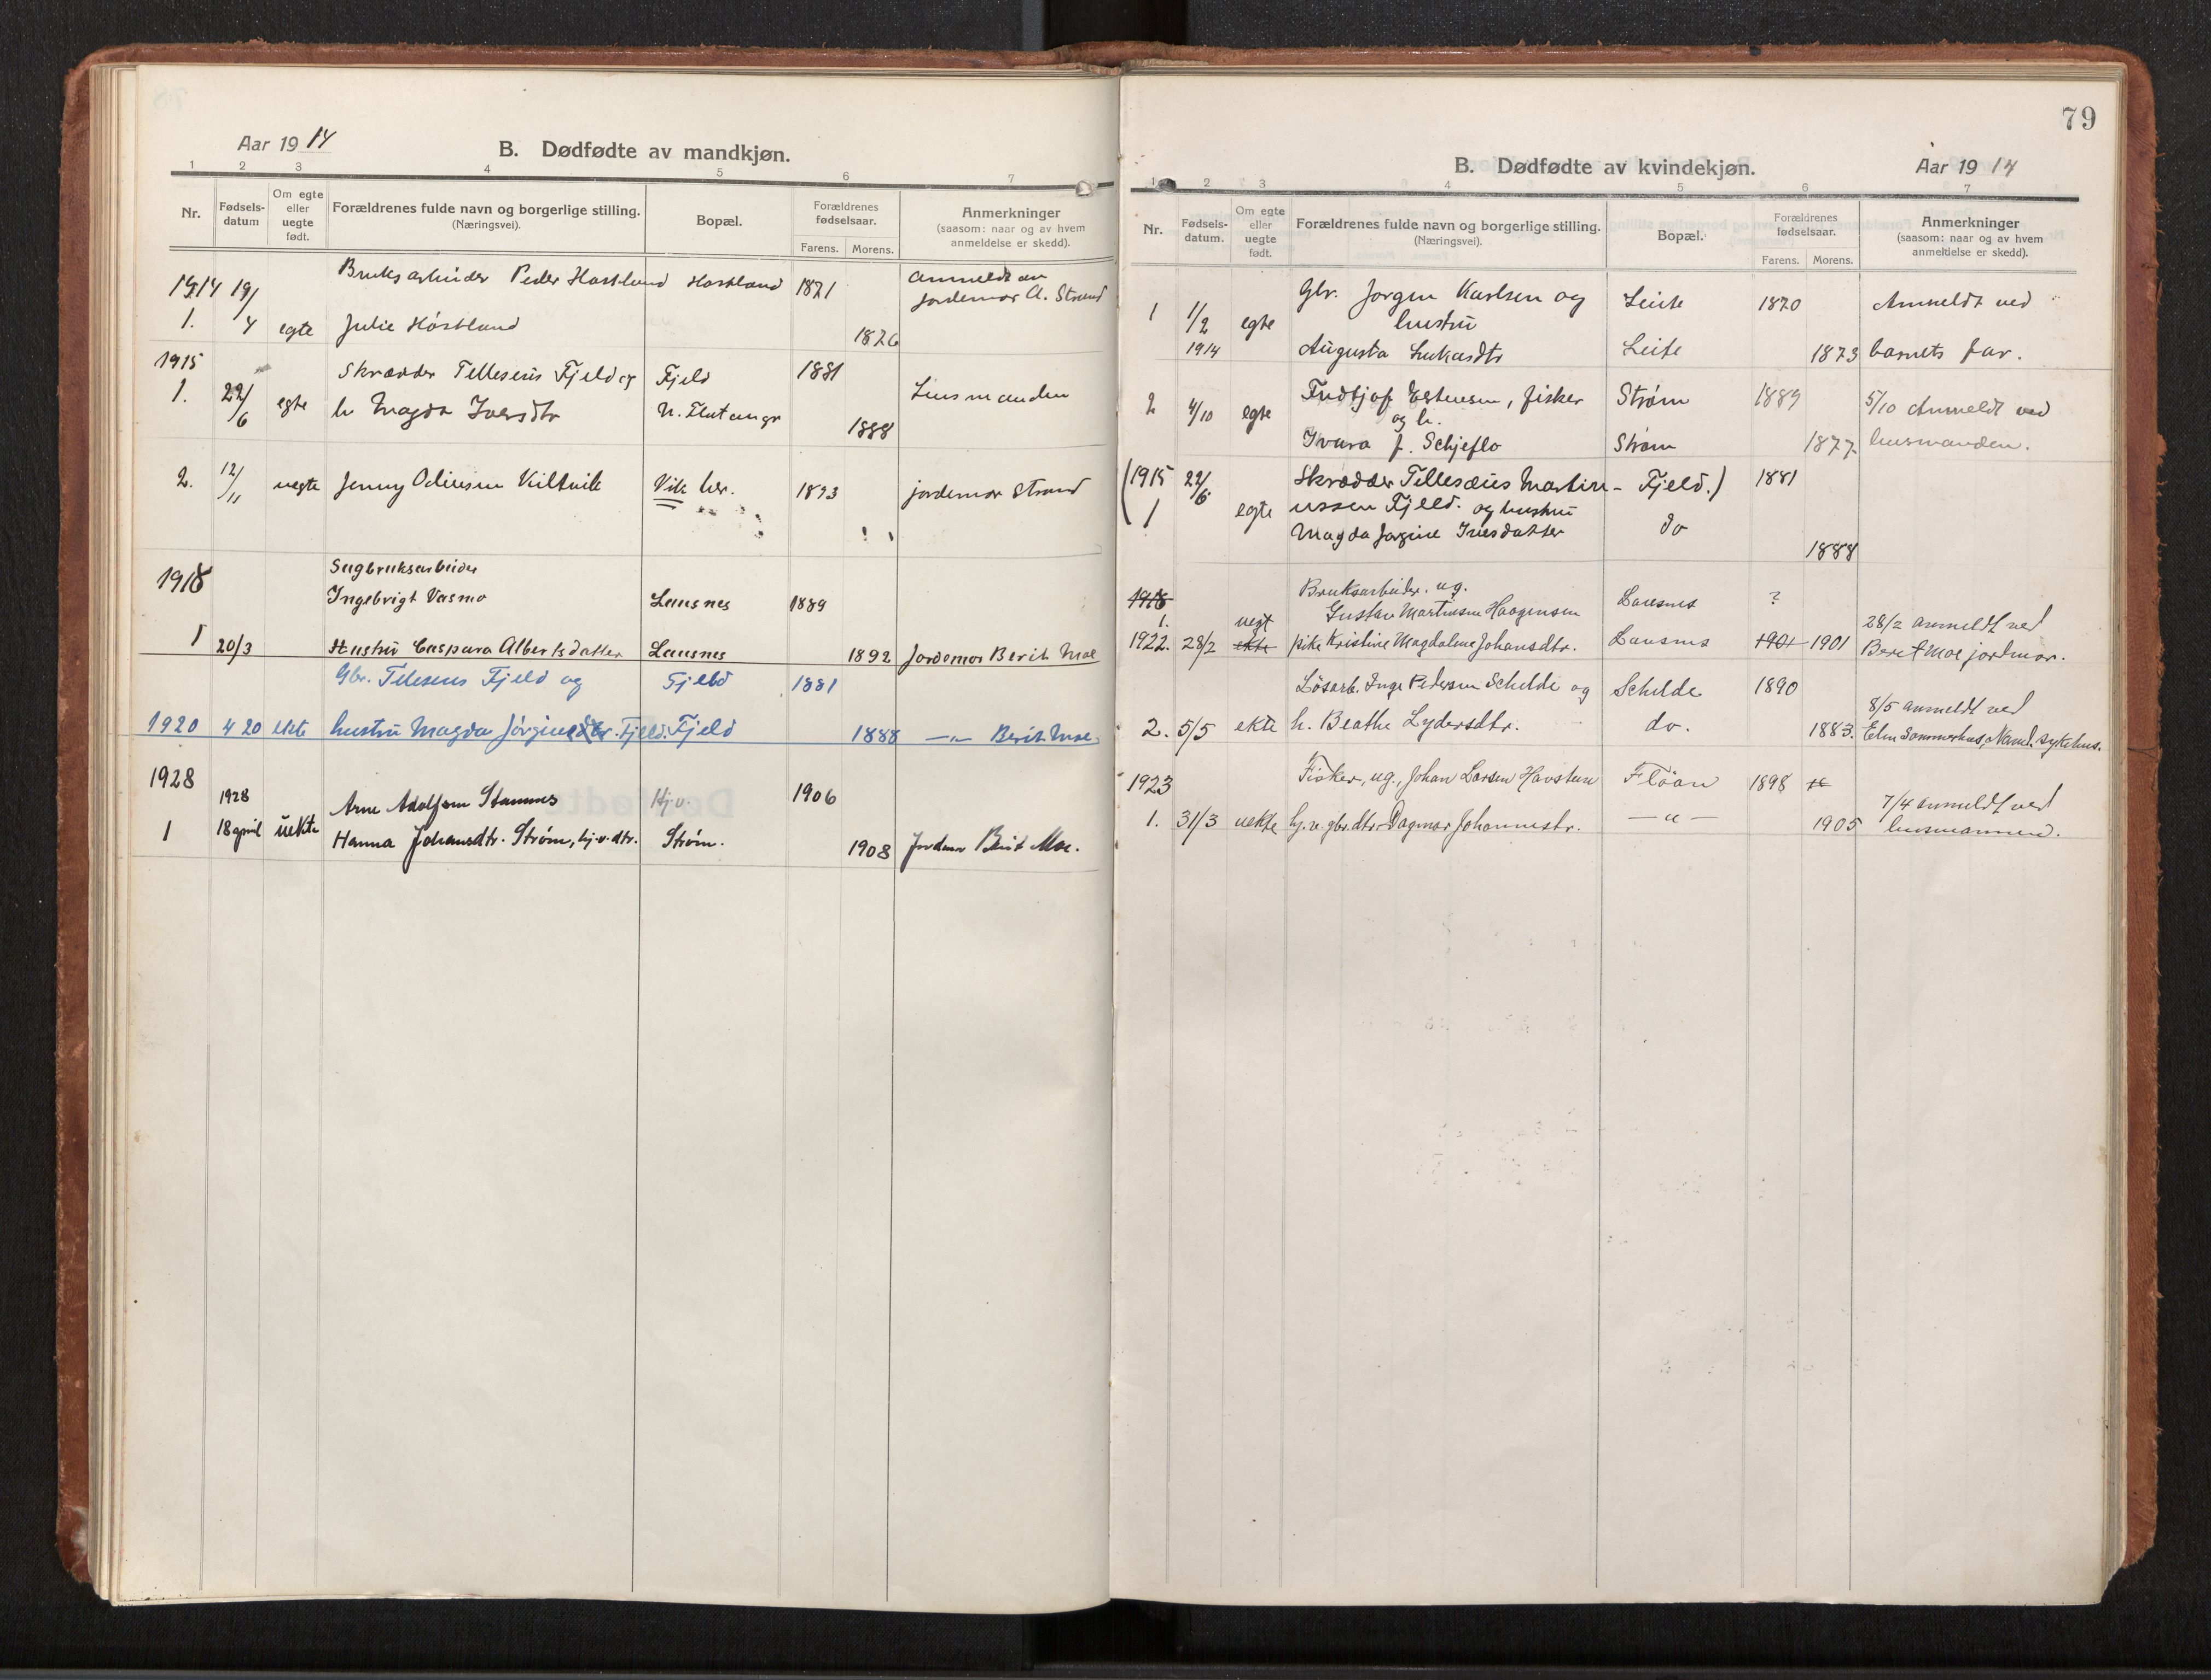 Aar 1914
B. Dødfødte av mandkjøn.
1 2 3 4 5 6 7
Nr.
Fødsels-
datum
Om egte
eller
uegte
født.
Forældrenes fulde navn og borgerlige stilling.
(Næringsvei).
Bopæl.
Forældrenes
fødselsaar.
Farens. Morens.
Anmerkninger
(saasom: naar og av hvem
anmeldelse er skedd).
Bruksarbeider Peder Hastlund Hastland 1871 anmeldt av
1914 19/ jordemor A. Strand
1. 4 egte Julie Høstland 1876
1915
Skrædder Tellesius Fjeld og Fjeld 1881
1. 22/6 egte h. Magda Iversdtr 1888 Lensmanden
2. 12/11 uegte Jenny Odinsen Vik hr. 1893 jordemor Strand
Sagbruksarbeider
1918 Ingebrigt Vasmo Lausnes 1889
1 20/3 Hustru Caspara Albertsdatter Lausnes 1892 Jordemor Berit Moe
Gbr. Telesius Fjeld og Fjeld 1881
1920 4 20 ekte hustru Magda Jørginedtr. Fjeld. Fjeld 1888 —"— Berit Moe.
1928
1928 Arne Adolfsen Stamnes Hj.v. 1906
1 18 april uekte Hanna Johansdtr. Strøm, hj.v. dtr. Strøm. 1908 Jordmor Berit Moe.
79
B. Dødfødte av kvindekjøn.
Aar 1914
1 2 3 4 5 6 7
Nr.
Fødsels-
datum.
Om egte
eller
uegte
født.
Forældrenes fulde navn og borgerlige stilling.
(Næringsvei).
Bopæl.
Forældrenes
fødselsaar.
Farens. Morens.
Anmerkninger
(saasom: naar og av hvem
anmeldelse er skedd).
Gbr. Jørgen Karlsen og Leite 1870 Anmeldt ved
1 1/2 egte hustru
1914 Augusta Lukasdtr Leite 1873 barnets far.
Fridtjof Estensen, fisker Strøm 1889 5/10 Anmeldt ved
2 4/10 egte og h.
Ivara J. Schjeflo Strøm 1877 lensmanden.
(1915 22/6 Skrædder Tellesæus Martin- Fjeld.) 1881
1 egte ussen Fjeld. og hustru
Magda Jørgine Iversdatter do 1888
1918 Bruksarbeider. ug.
1. uegt Gustav Martinsen Haagensen Lausnes ?
28/2 anmeldt ved
1922. 28/2 ekte pike Kristine Magdalene Johansdtr. Lausnes 1901 1901 Beret Moe jordmor.
Løsarb. Inge Pedersen Schelde og Schelde 1890
8/5 anmeldt ved
2. 5/5 ekte h. Beathe Lydersdtr. do. 1883. Elen Sommerhus, Namd. sykehus.
1923 Fisker, ug., Johan Larsen Havstein Fløan 1898
7/4 anmeldt ved
1. 31/3 uekte hj.v. gbr.dtr. Dagmar Johannesdtr. —"— 1905 lensmannen.